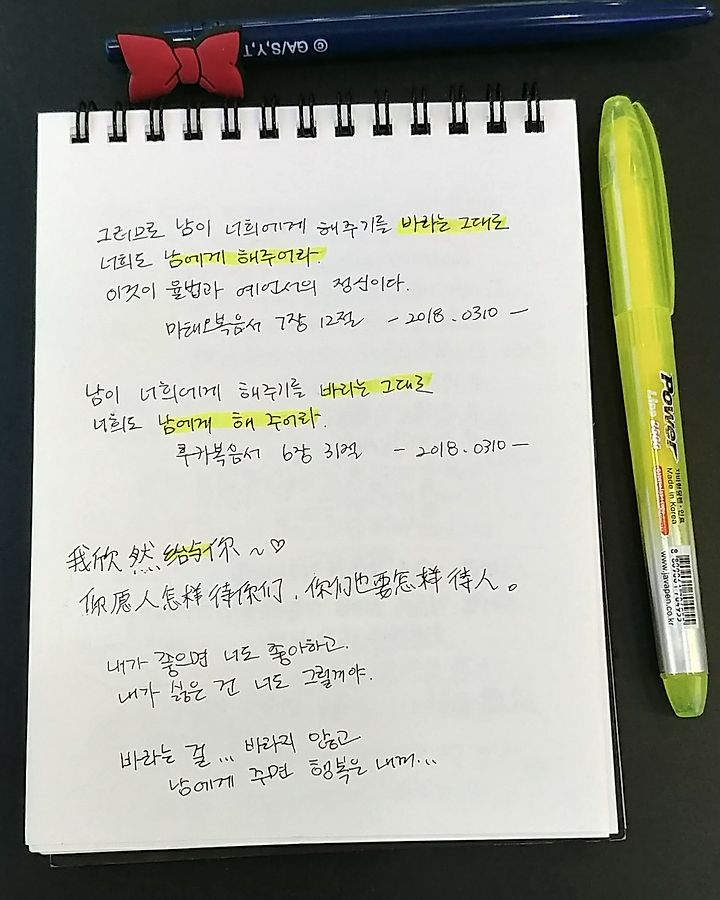 © GA/S,Y,T
그러므로 남이 너희에게 해주기를 바라는 그대로
너희도 남에게 해주어라.
이것이 율법과 예언서의 정신이다.
마태오복음서 7장 12절 - 2018.0310 -
남이 너희에게 해주기를 바라는 그대로
너희도 남에게 해 주어라.
루카복음서 6장 31절 - 2018.0310 -
我欣然给与你 ~ ♡
你愿人怎样待你们, 你们也要怎样待人。
내가 좋으면 너도 좋아하고.
내가 싫은 건 너도 그럴꺼야.
바라는 걸... 바라지 않고
남에게 주면 행복은 내꺼...
Power
Line
Made in Korea
www.javapen.co.kr